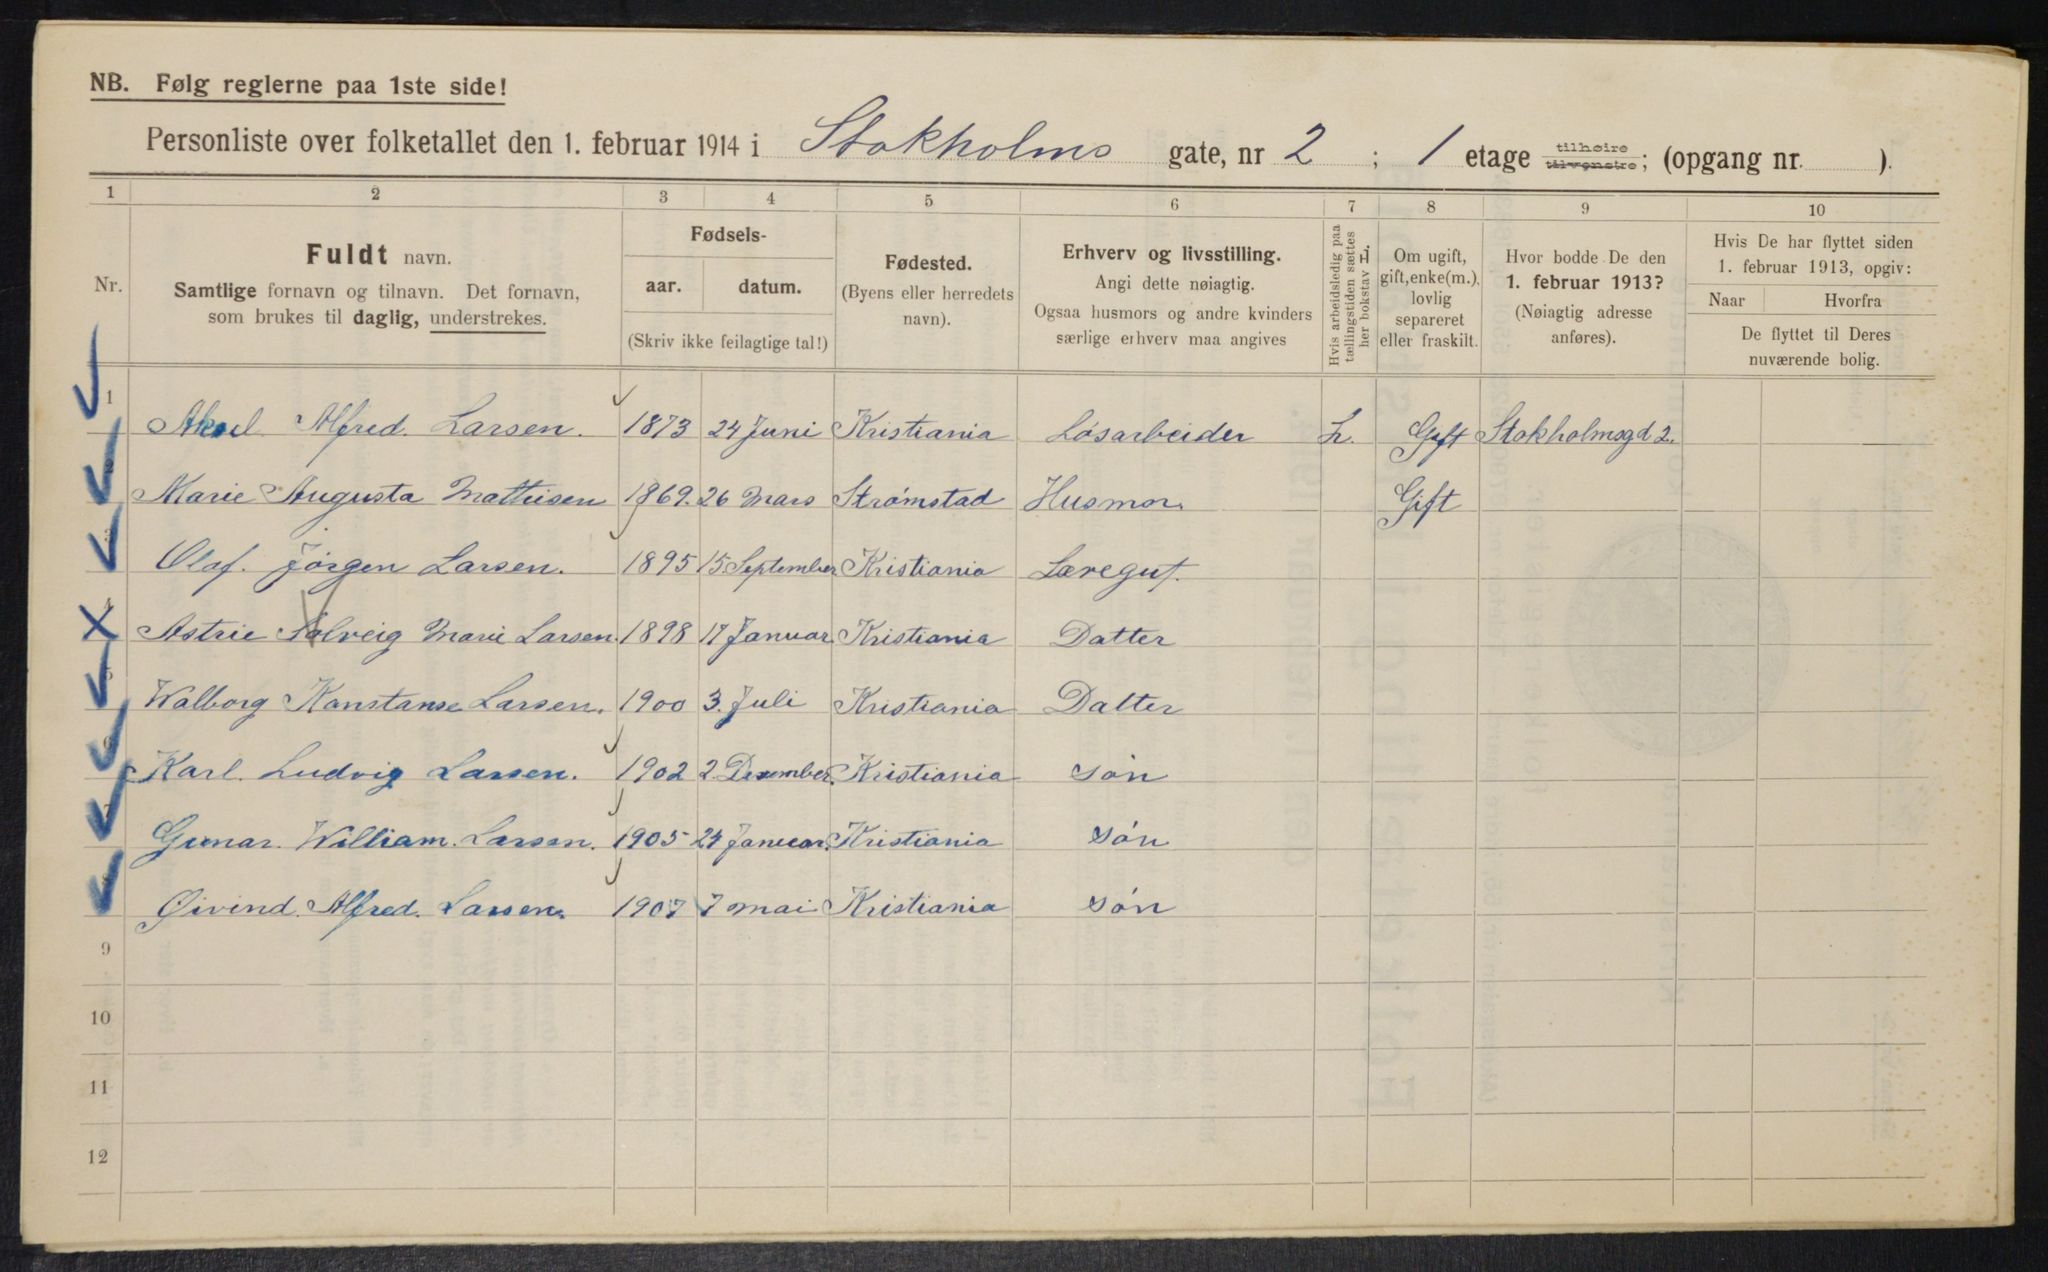 NB. Følg reglerne paa 1ste side!
Personliste over folketallet den 1. februar 1914 i Stokholms gate, nr 2 ; 1 etage tilhøire tilvenstre; (opgang nr. ).
1 2 3 4 5 6 7 8 9 10
Nr.
Fuldt navn.
Samtlige fornavn og tilnavn. Det fornavn,
som brukes til daglig, understrekes.
Fødsels-
aar. datum.
(Skriv ikke feilagtige tal!)
Fødested.
(Byens eller herredets
navn).
Erhverv og livsstilling.
Angi dette nøiagtig.
Ogsaa husmors og andre kvinders
særlige erhverv maa angives
Hvis arbeidsledig paa
tællingstiden sættes
her bokstav L.
Om ugift,
gift, enke(m.),
lovlig
separeret
eller fraskilt.
Hvor bodde De den
1. februar 1913?
(Nøiagtig adresse
anføres).
Hvis De har flyttet siden
1. februar 1913, opgiv:
Naar Hvorfra
De flyttet til Deres
nuværende bolig.
1 Aksel Alfred. Larsen. 1873 24 Juni Kristiania Løsarbeider L. Gift Stokholmsgd 2.
2 Marie Augusta Mathisen 1869. 26 Mars Strømstad Husmor. Gift
3 Olaf. Jörgen Larsen. 1895 15 September Kristiania Læregut.
4 Astrie Solveig Marie Larsen. 1898 17 Januar Kristiania Datter
5 Walborg Kanstanse Larsen. 1900 3. Juli Kristiania Datter
6 Karl. Ludvig Larsen. 1902 2 Desember. Kristiania søn
7 Gunar. William. Larsen. 1905 24 Januar. Kristiania søn
8 Øivind. Alfred. Larsen. 1907 7 mai Kristiania søn
9
10
11
12